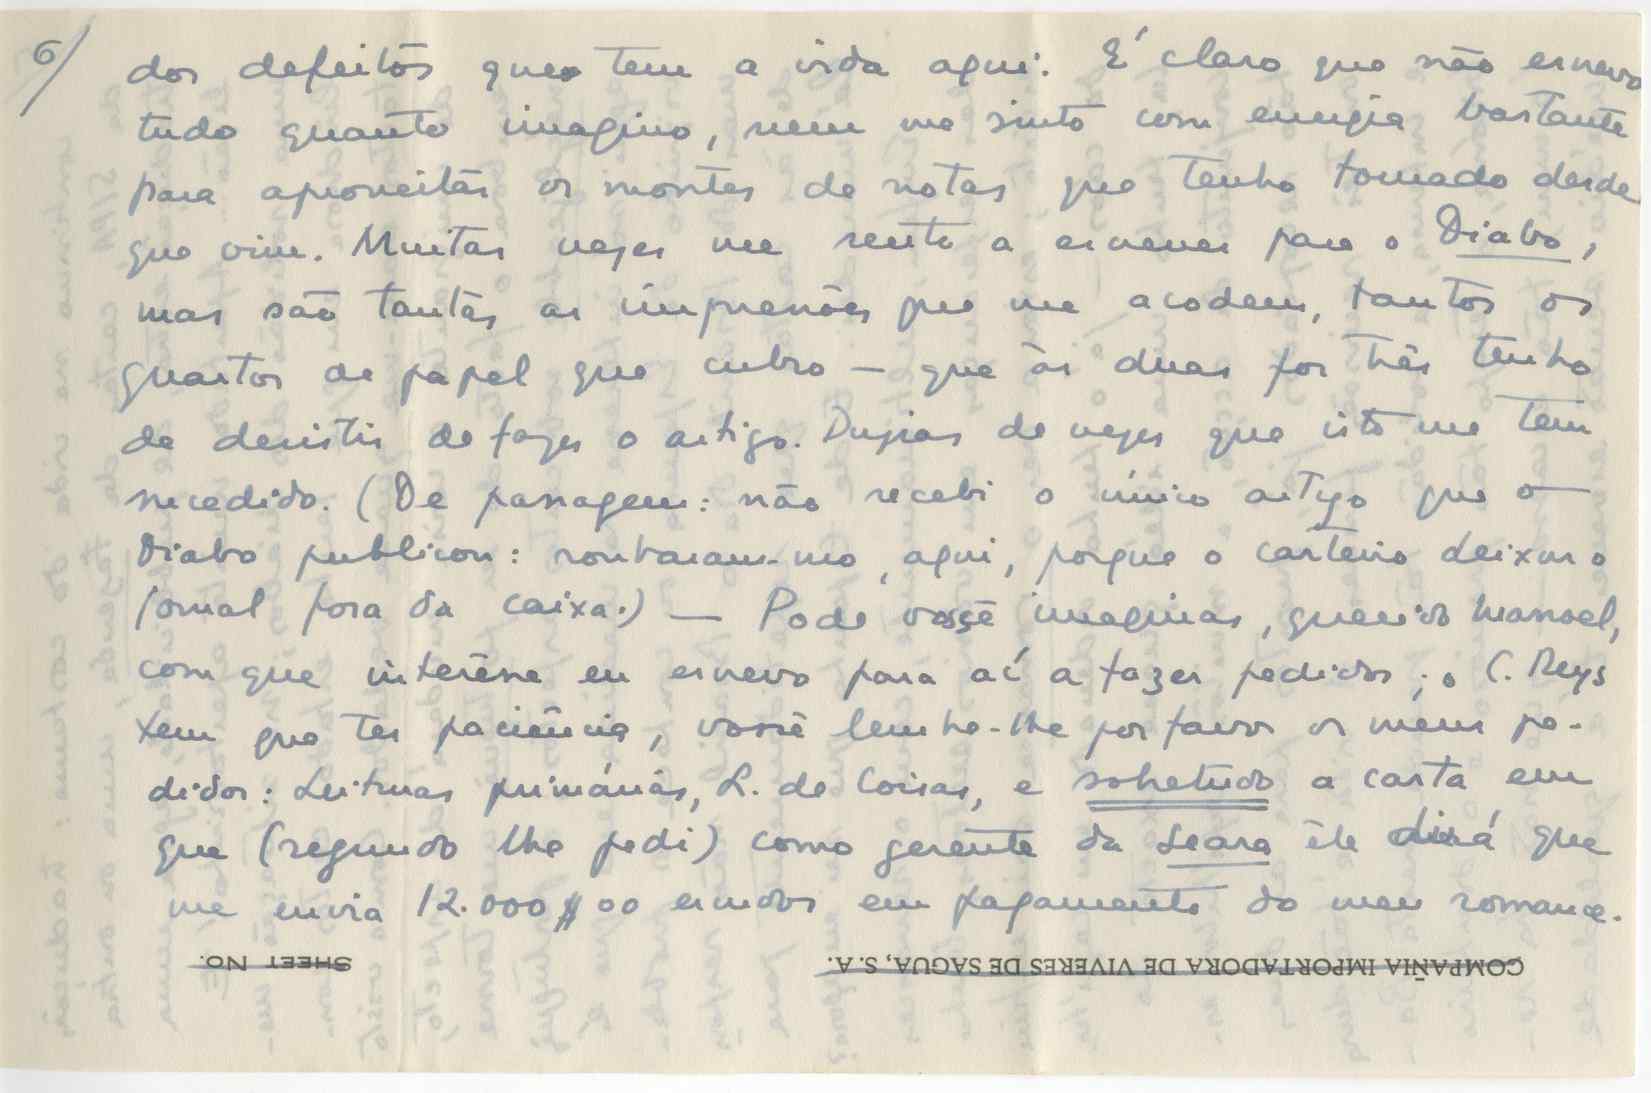 6/
dos defeitos que tem a vida aqui. É claro que não escrevo
tudo quanto imagino, nem me sinto com energia bastante
para aproveitar os montes de notas que tenho tomado desde
que vim. Muitas vezes me sento a escrever para o Diabo,
mas são tantas as impressões que me acodem, tantos os
quartos de papel que cubro — que às duas por três tenho
de desistir de fazer o artigo. Duzias de vezes que isto me tem
sucedido. (De passagem: não recebi o único artigo que o
Diabo publicou: roubaram-mo, aqui, porque o carteiro deixou o
jornal fora da caixa.) — Pode você imaginar, querido Manoel,
com que interêsse eu escrevo para aí a fazer pedidos; o C. Reys
tem que ter paciência, você lembre-lhe por favor os meus pe-
didos: Leituras primárias, L. de Coisas, e sobretudo a carta em
que (segundo lhe pedi) como gerente da Seara êle dirá que
me envia 12.000$00 escudos em pagamento do meu romance.
COMPAÑIA IMPORTADORA DE VIVERES DE SAGUA, S. A.
SHEET NO.